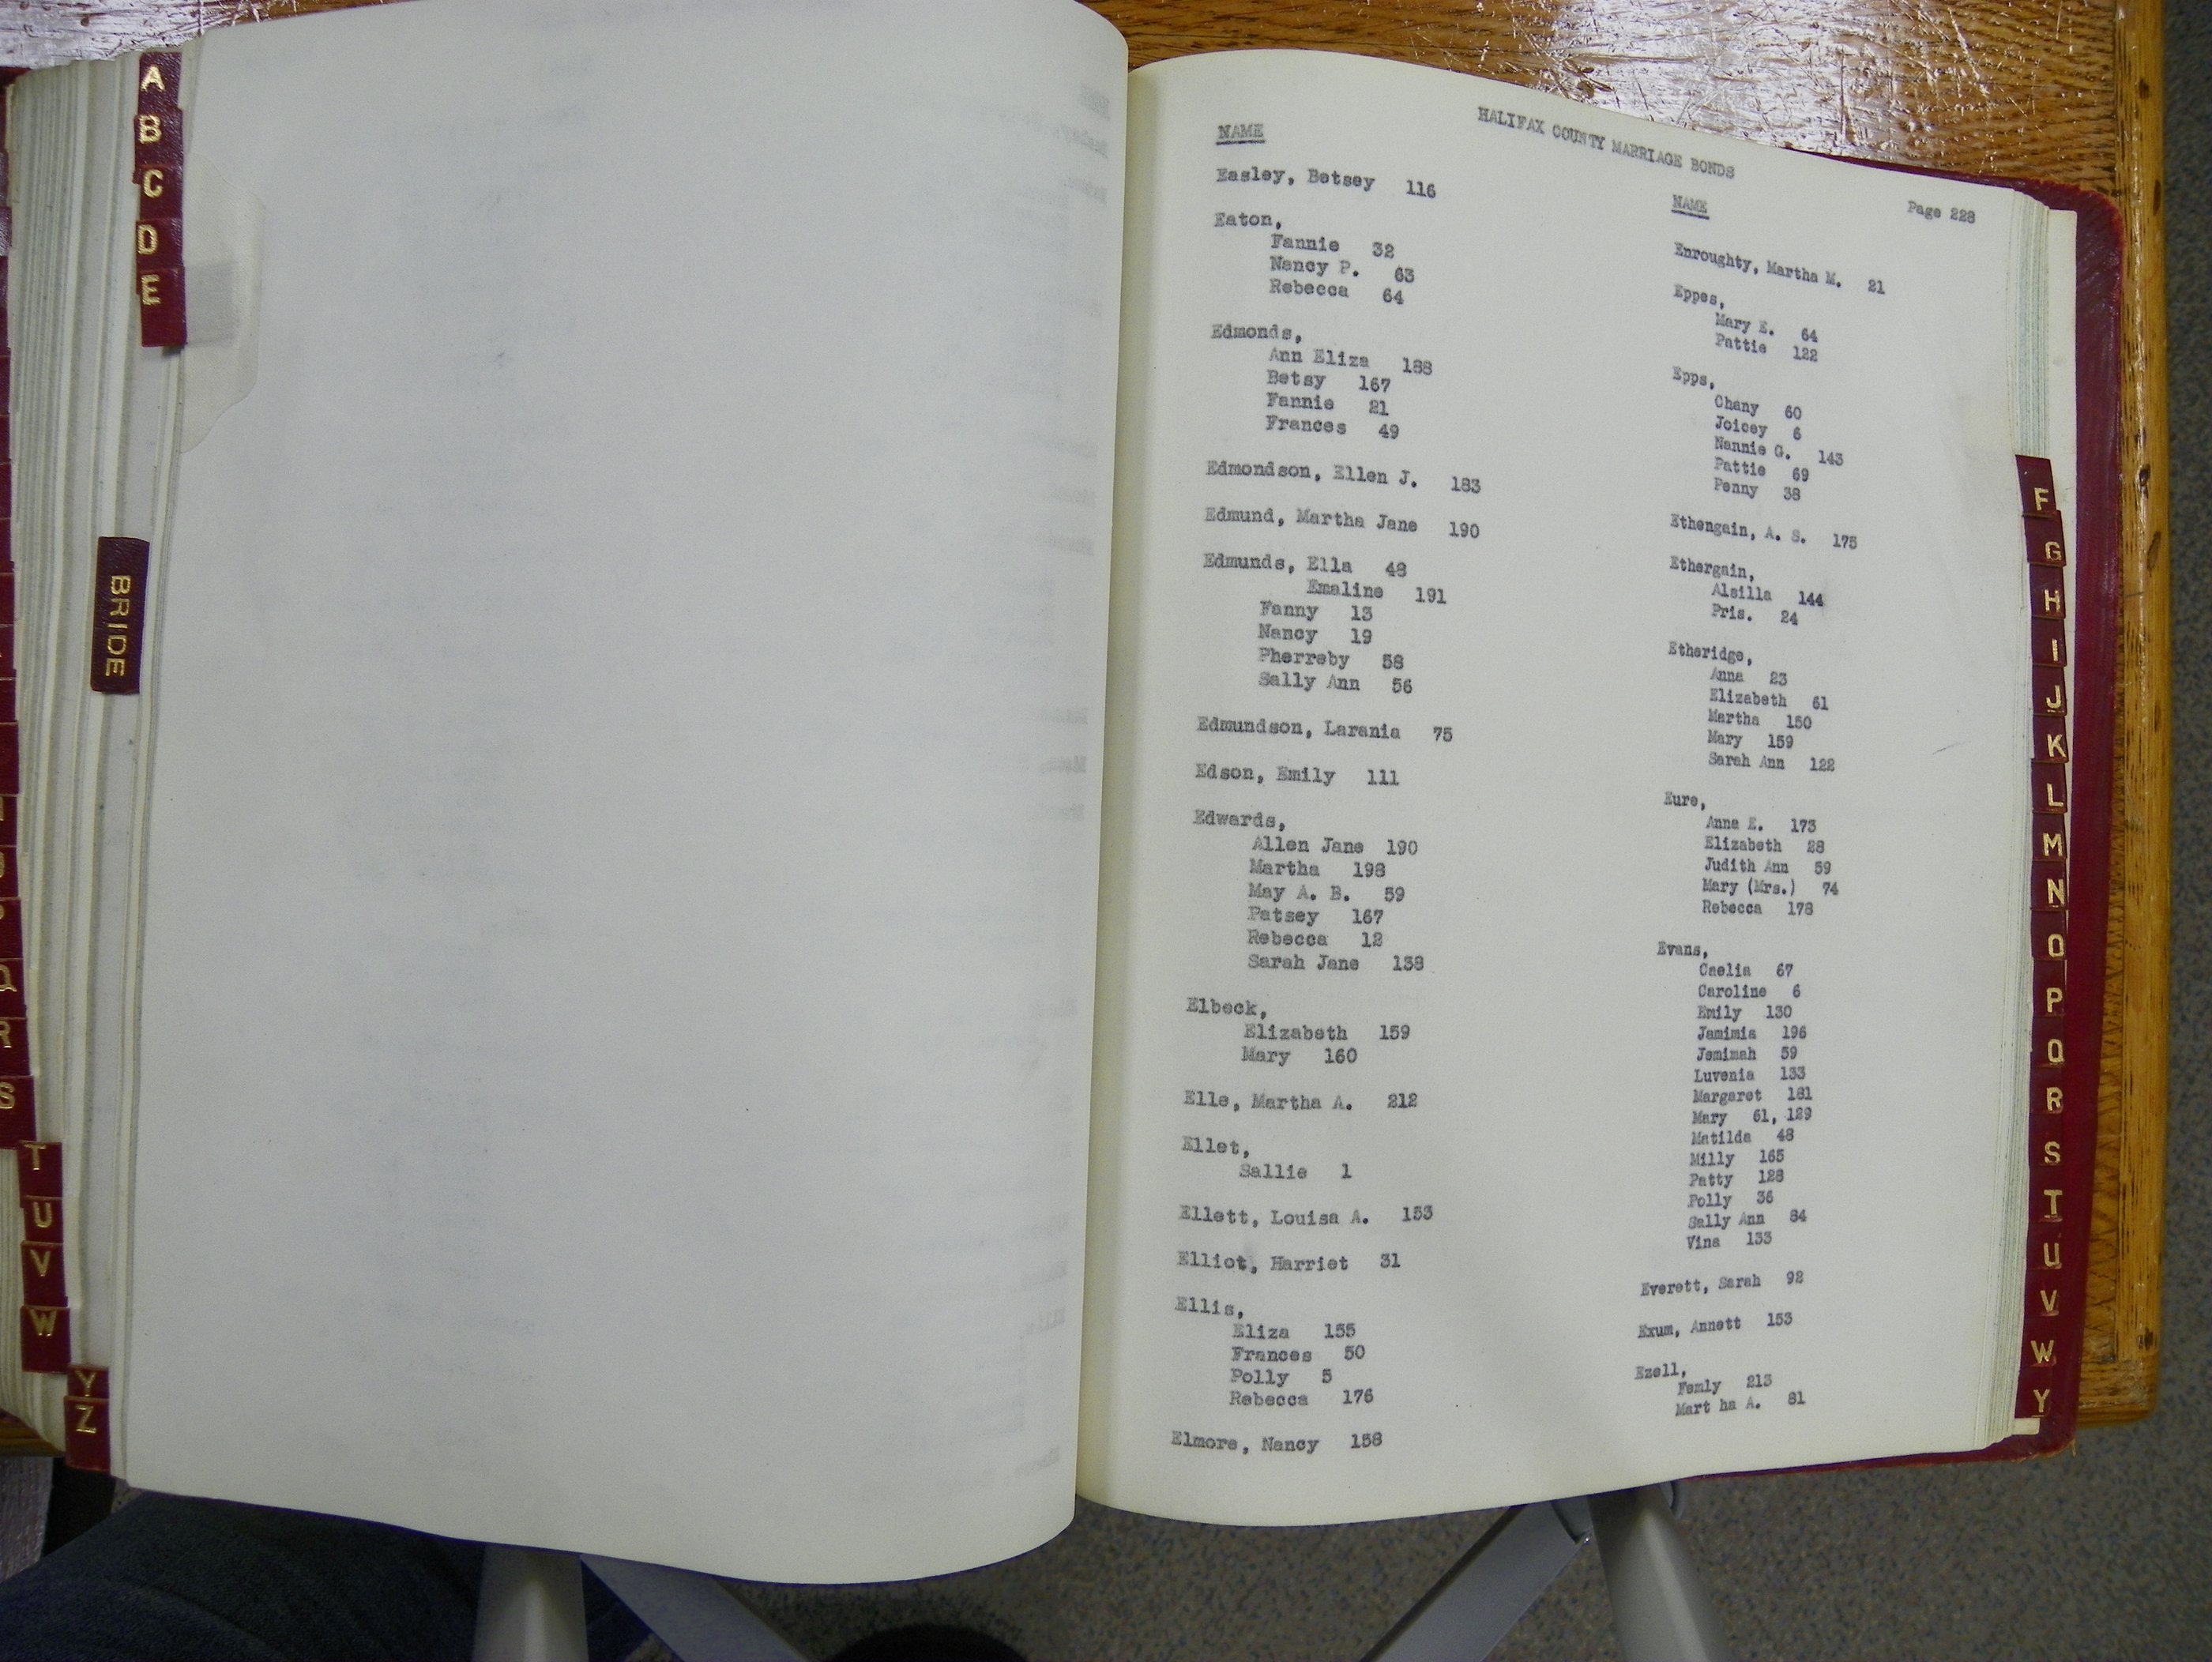 A
B
C
D
E
BRIDE
R
S
T
U
V
W
Y
Z
HALIFAX COUNTY MARRIAGE BONDS
Page 228
NAME
Easley, Betsey 116
Eaton,
Fannie 32
Nancy P. 63
Rebecca 64
Edmonds,
Ann Eliza 188
Betsy 167
Fannie 21
Frances 49
Edmondson, Ellen J. 183
Edmund, Martha Jane 190
Edmunds, Ella 48
Emaline 191
Fanny 13
Nancy 19
Pherreby 58
Sally Ann 56
Edmundson, Larania 75
Edson, Emily 111
Edwards,
Allen Jane 190
Martha 198
May A. B. 59
Patsey 167
Rebecca 12
Sarah Jane 138
Elbeck,
Elizabeth 159
Mary 160
Elle, Martha A. 212
Ellet,
Sallie 1
Ellett, Louisa A. 153
Elliot, Harriet 31
Ellis,
Eliza 155
Frances 50
Polly 5
Rebecca 176
Elmore, Nancy 158
NAME
Enroughty, Martha M. 21
Eppes,
Mary E. 64
Pattie 122
Epps,
Chany 60
Joicey 6
Nannie G. 143
Pattie 69
Penny 38
Ethengain, A. S. 175
Ethergain,
Alsilla 144
Pris. 24
Etheridge,
Anna 23
Elizabeth 61
Martha 150
Mary 159
Sarah Ann 122
Eure,
Anna E. 173
Elizabeth 28
Judith Ann 59
Mary (Mrs.) 74
Rebecca 178
Evans,
Caelia 67
Caroline 6
Emily 130
Jamimia 196
Jemimah 59
Luvenia 133
Margaret 181
Mary 61, 129
Matilda 48
Milly 165
Patty 128
Polly 36
Sally Ann 84
Vina 133
Everett, Sarah 92
Exum, Annett 153
Ezell,
Femly 213
Mart ha A. 81
F
G
H
I
J
K
L
M
N
O
P
Q
R
S
T
U
V
W
Y